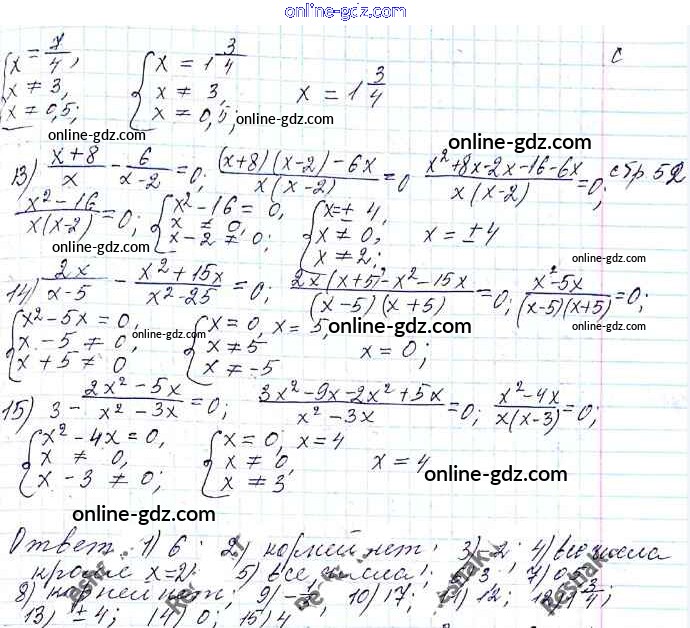 online-gdz.com
x = 7/4, x = 1 3/4 с
x ≠ 3, x ≠ 3, x = 1 3/4
x ≠ 0,5; x ≠ 0,5; online-gdz.com
online-gdz.com online-gdz.com
13) (x+8)/x - 6/(x-2) = 0; ((x+8)(x-2)-6x)/(x(x-2)) = 0 (x²+8x-2x-16-6x)/(x(x-2)) = 0; стр 52
(x²-16)/(x(x-2)) = 0; { x²-16 = 0, { x = ± 4,
x ≠ 0, x ≠ 0, x = ±4
x-2 ≠ 0; x ≠ 2;
online-gdz.com online-gdz.com
14) 2x/(x-5) - (x²+15x)/(x²-25) = 0; (2x(x+5)-x²-15x)/((x-5)(x+5)) = 0; (x²-5x)/((x-5)(x+5)) = 0;
{ x²-5x = 0, { x = 0, x = 5, online-gdz.com online-gdz.com
x - 5 ≠ 0, online-gdz.com x ≠ 5 x = 0;
x + 5 ≠ 0 x ≠ -5
15) 3 - (2x²-5x)/(x²-3x) = 0; (3x²-9x-2x²+5x)/(x²-3x) = 0; (x²-4x)/(x(x-3)) = 0;
{ x²-4x = 0, { x = 0; x = 4
x ≠ 0, x ≠ 0, x = 4
x - 3 ≠ 0; x ≠ 3 online-gdz.com
online-gdz.com online-gdz.com
Ответ: 1) 6; 2) корней нет; 3) -2; 4) все числа
кроме x=2; 5) все числа; 3 7) 0,5
8) корней нет; 9) 10) 17; 11) 12; 12) 1 3/4;
13) ±4; 14) 0; 15) 4